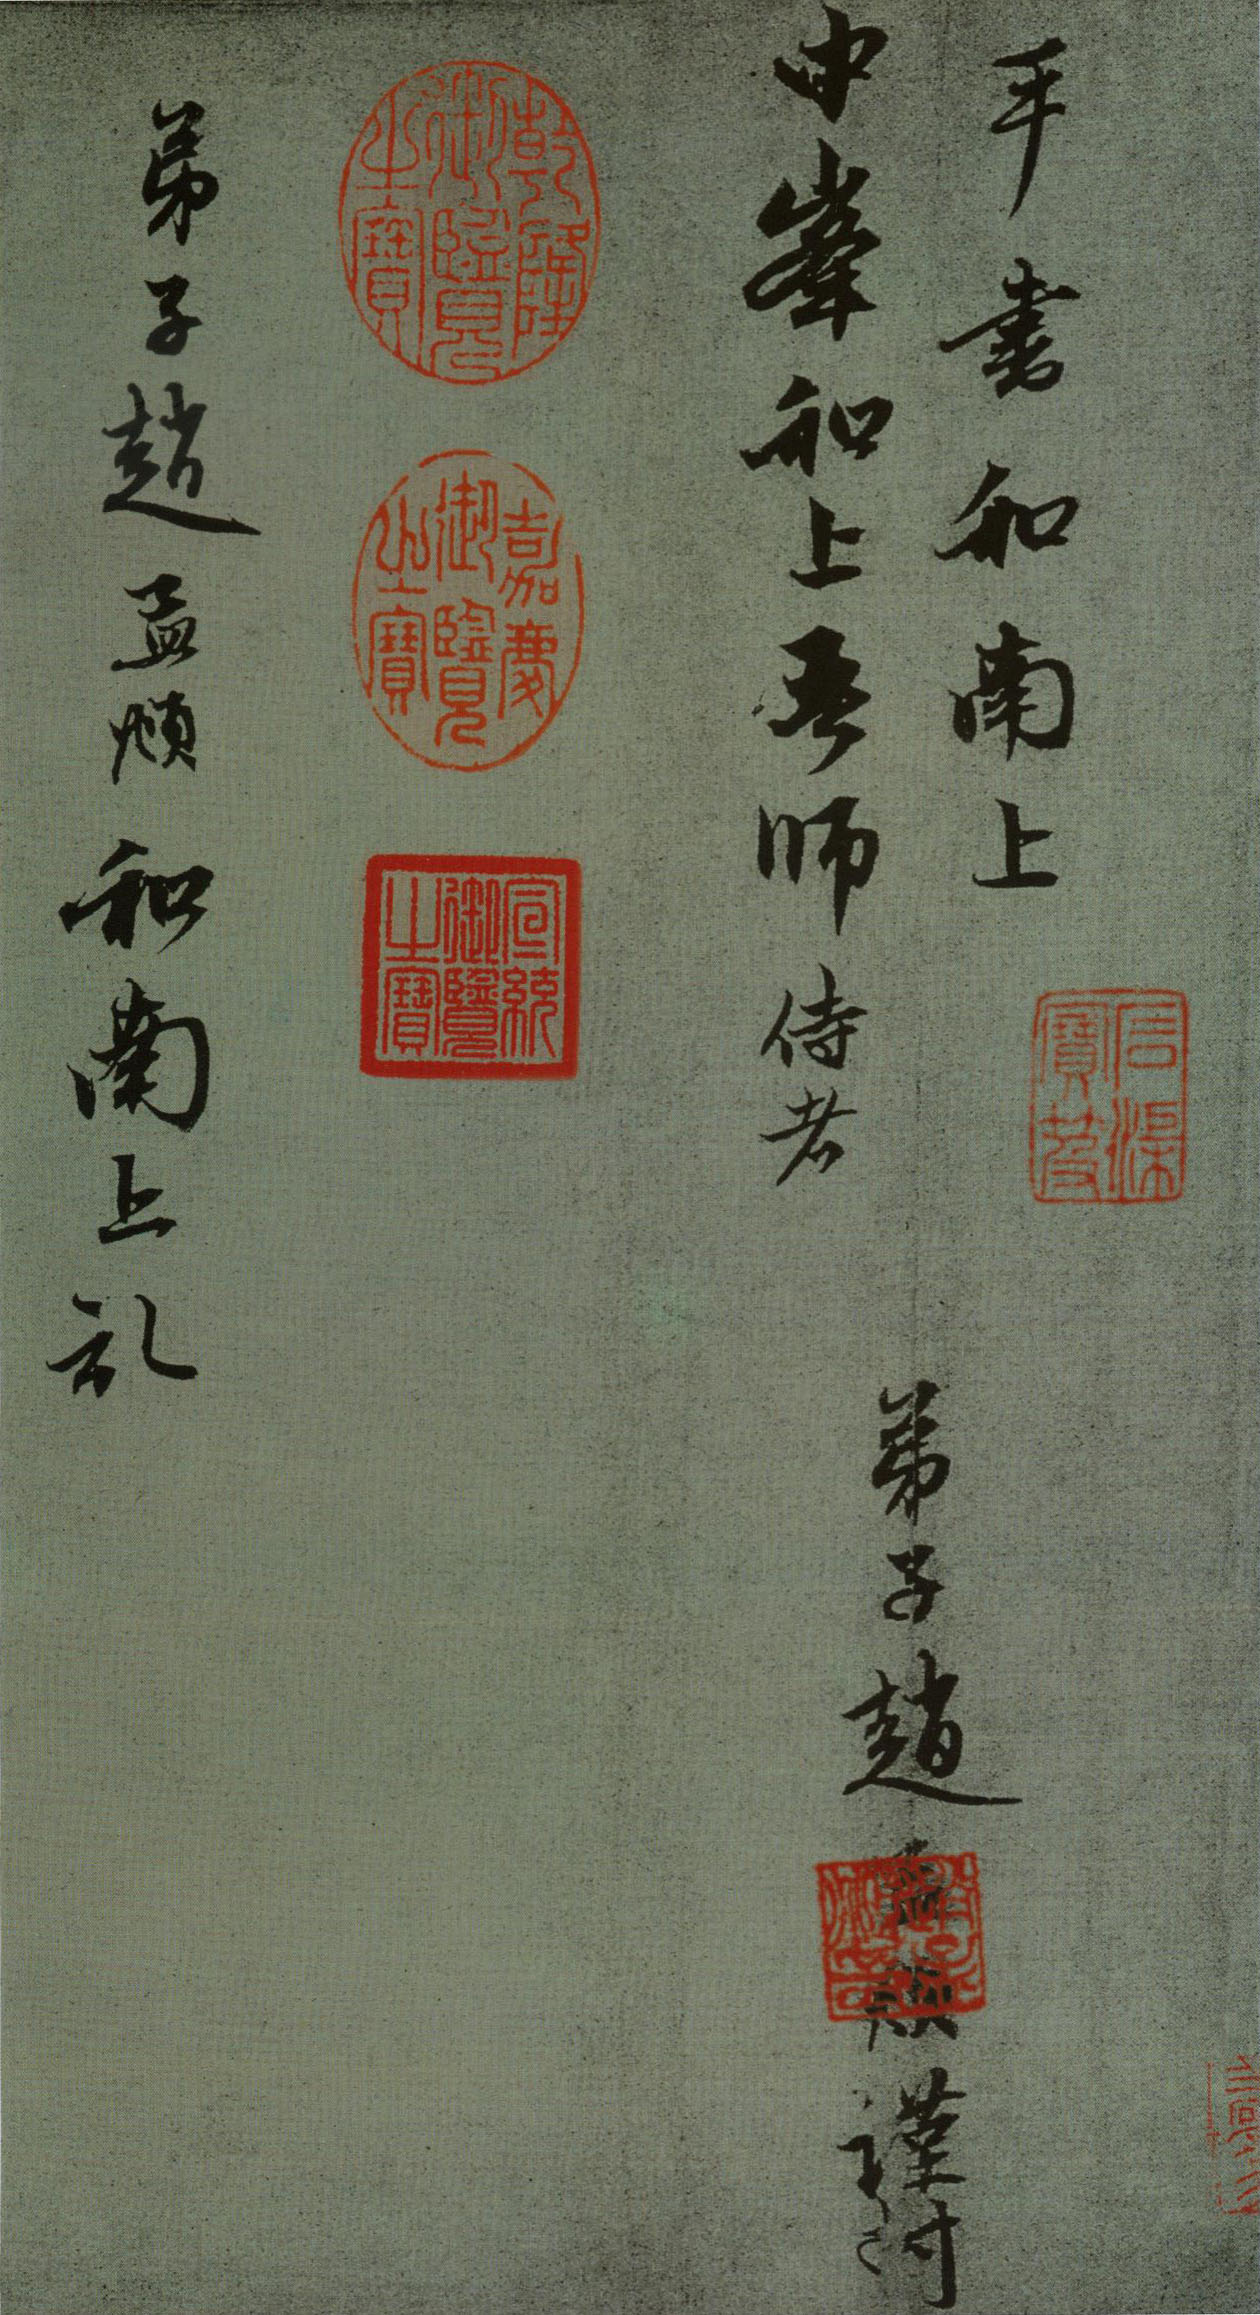 手書和南上
中峯和上吾師侍者
弟子趙孟頫謹封
乾隆御覽之寶
嘉慶御覽之寶
宣統御覽之寶
石渠寶笈
趙氏子昂
弟子趙孟頫和南上記